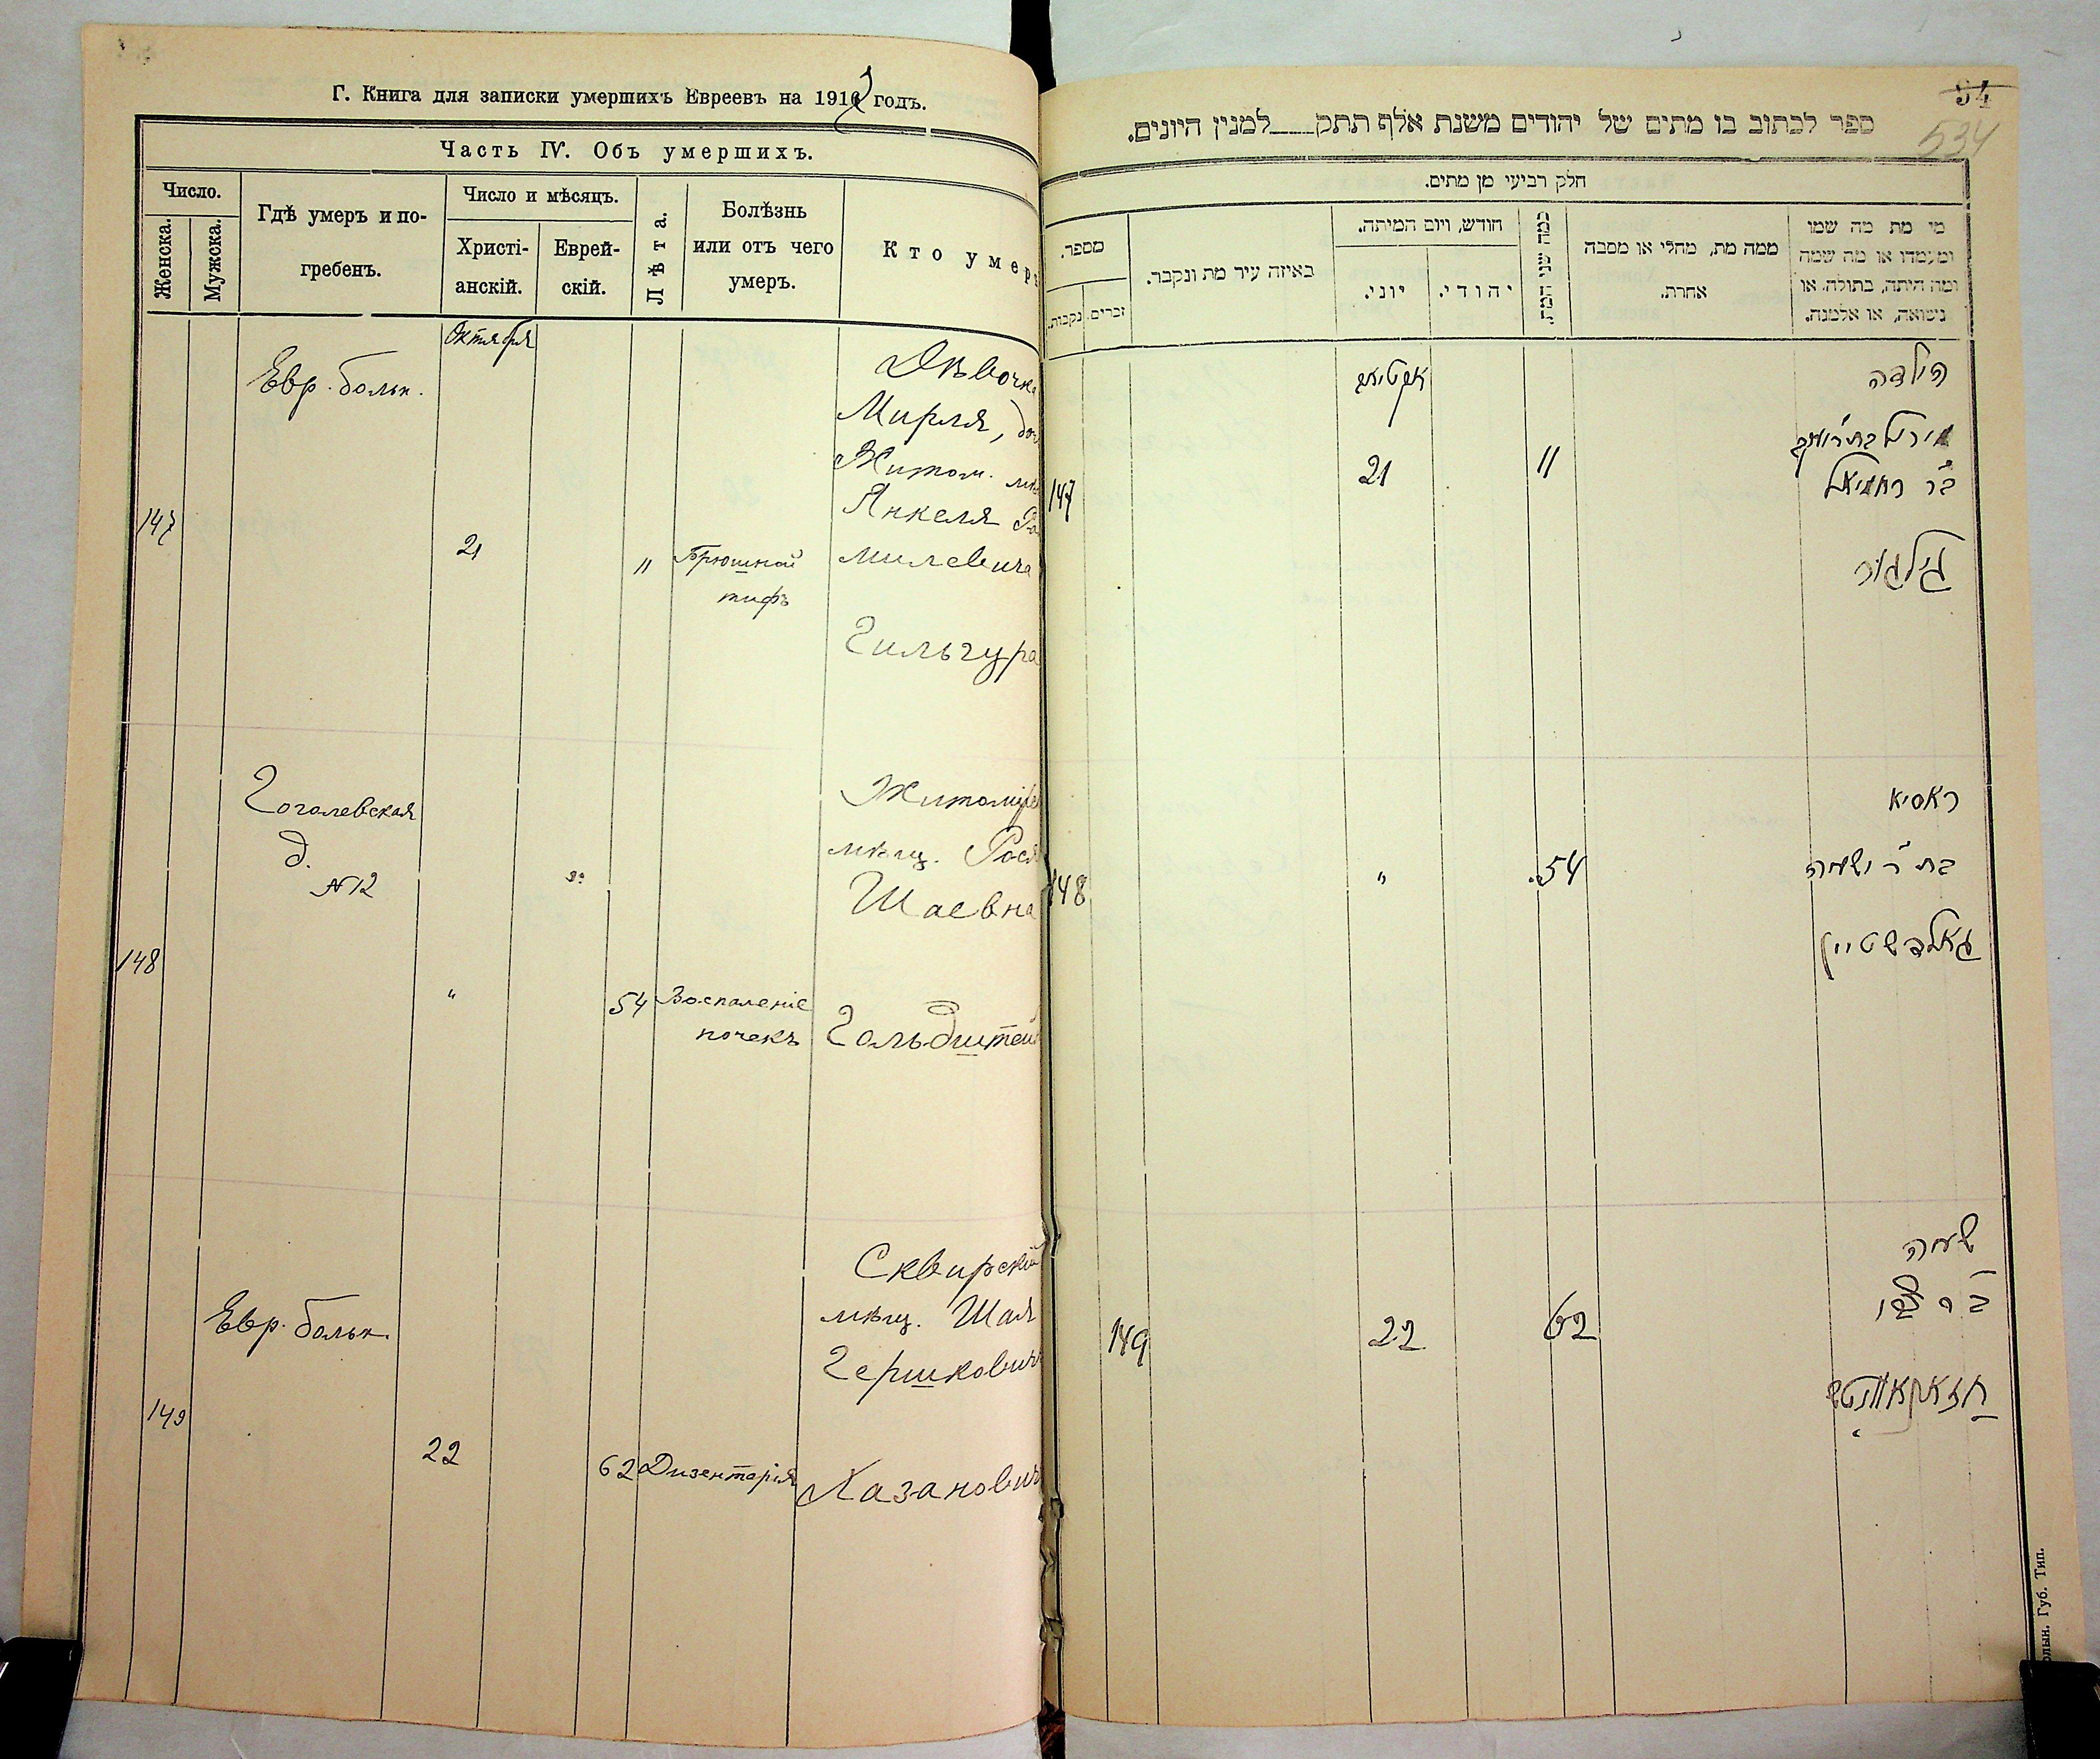 Г. Книга для записки умершихъ Евреевъ на 1912 годъ.
Часть IV. Объ умершихъ.
Число.
Женска.
Мужска.
Гдѣ умеръ и по-
гребенъ.
Число и мѣсяцъ.
Христі-
анскій.
Еврей-
скій.
Лѣта.
Болѣзнь
или отъ чего
умеръ.
Кто умер
Октября
147
Евр. больн.
21
11
Брюшной
тифъ
Дѣвочка
Мирля, доч
Житом. мѣ
Янкеля Ра
милевича
Гильгура
148
Гоголевская
д.
№12
"
54
Воспаленіе
почекъ
Житомірс
мѣщ. Рося
Шаевна
Гольдштейн
149
Евр. больн.
22
62
Дизентерія
Сквирскій
мѣщ. Шая
Гершкович
Казанович
54
534
ספר לכתוב בו מתים של יהודים משנת אלף תתק למנין היונים.
חלק רביעי מן מתים.
מספר.
נקבות.
זכרים.
באיזה עיר מת ונקבר.
חודש, ויום המיתה.
יוני.
יהודי.
כמה שני המת.
ממה מת, מחלי או מסבה
אחרת.
מי מת מה שמו
ומעמדו או מה שמה
ומה היתה, בתולה. או
נישואה, או אלמנה.
147
21
11
הילדה
מירל בת ר' יעקב
ב"ר רחמיאל
גילגור
148
"
54
ראסיא
בת ר' ישעיה
גאלדשטיין
149
22
62
ישעיה
ב"ר הירש
קאזאנאוויטש
Губ. Тип.